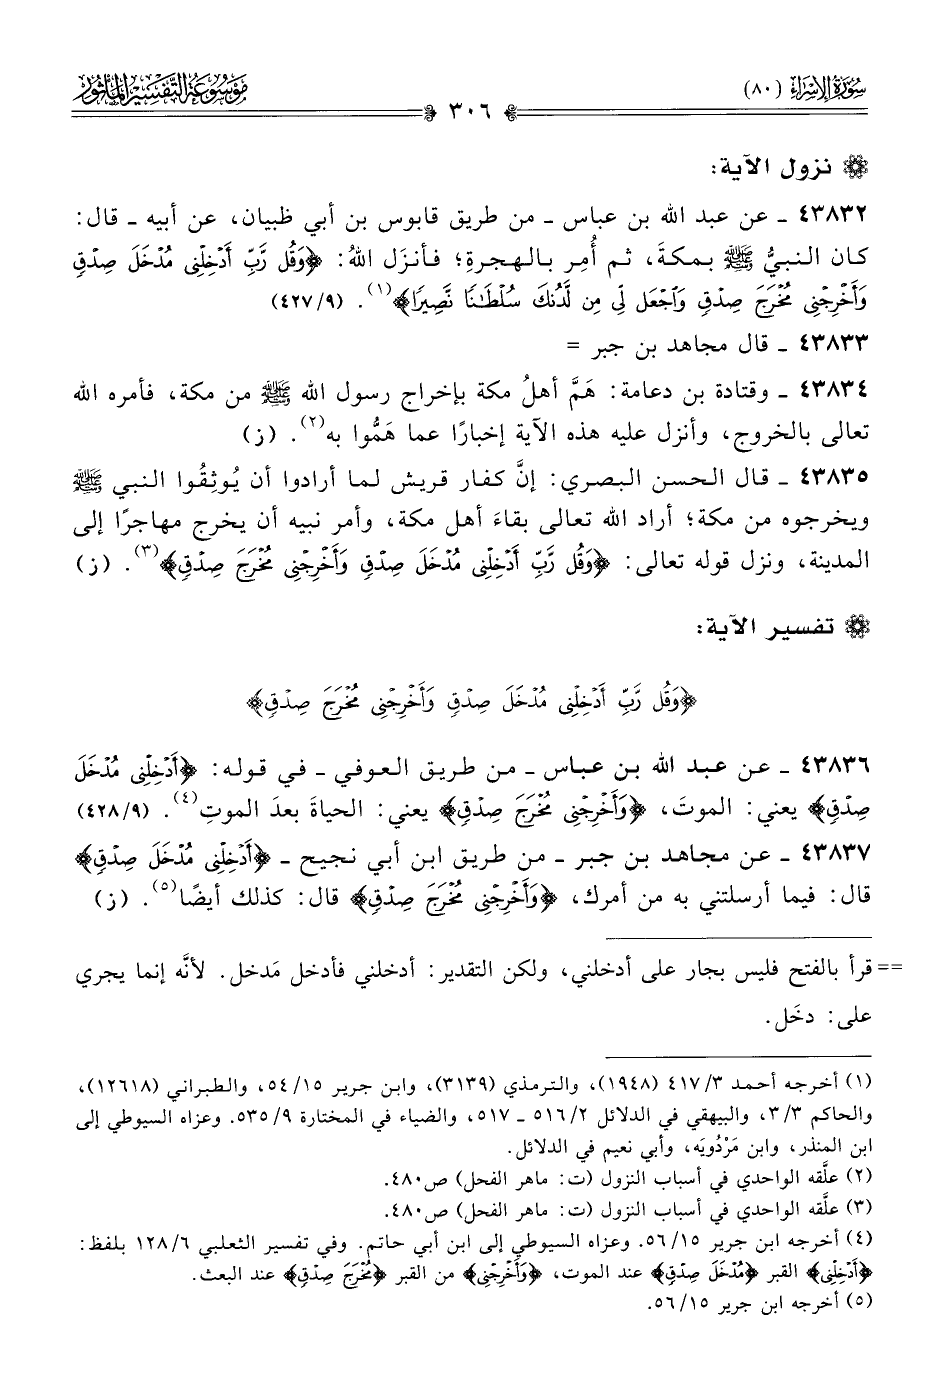 سورة الإسراء (٨٠)
موسوعة التفسير المأثور
٣٠٦
نزول الآية:
٤٣٨٣٢ ـ عن عبد الله بن عباس ـ من طريق قابوس بن أبي ظبيان، عن أبيه ـ قال:
كان النبيُّ ﷺ بمكةَ، ثم أُمِر بالهجرةِ؛ فأنزَل اللهُ: ﴿وَقُل رَّبِّ أَدْخِلْنِى مُدْخَلَ صِدْقٍ
وَأَخْرِجْنِى مُخْرَجَ صِدْقٍ وَٱجْعَل لِّى مِن لَّدُنكَ سُلْطَـٰنًا نَّصِيرًا﴾(١). (٤٢٧/٩)
٤٣٨٣٣ ـ قال مجاهد بن جبر =
٤٣٨٣٤ ـ وقتادة بن دعامة: هَمَّ أهلُ مكة بإخراج رسول الله ﷺ من مكة، فأمره الله
تعالى بالخروج، وأنزل عليه هذه الآية إخبارًا عما هَمُّوا به(٢). (ز)
٤٣٨٣٥ ـ قال الحسن البصري: إنَّ كفار قريش لما أرادوا أن يُوثِقُوا النبي ﷺ
ويخرجوه من مكة؛ أراد الله تعالى بقاءَ أهل مكة، وأمر نبيه أن يخرج مهاجرًا إلى
المدينة، ونزل قوله تعالى: ﴿وَقُل رَّبِّ أَدْخِلْنِى مُدْخَلَ صِدْقٍ وَأَخْرِجْنِى مُخْرَجَ صِدْقٍ﴾(٣). (ز)
تفسير الآية:
﴿وَقُل رَّبِّ أَدْخِلْنِى مُدْخَلَ صِدْقٍ وَأَخْرِجْنِى مُخْرَجَ صِدْقٍ﴾
٤٣٨٣٦ ـ عن عبد الله بن عباس ـ من طريق العوفي ـ في قوله: ﴿أَدْخِلْنِى مُدْخَلَ
صِدْقٍ﴾ يعني: الموتَ، ﴿وَأَخْرِجْنِى مُخْرَجَ صِدْقٍ﴾ يعني: الحياةَ بعدَ الموتِ(٤). (٤٢٨/٩)
٤٣٨٣٧ ـ عن مجاهد بن جبر ـ من طريق ابن أبي نجيح ـ ﴿أَدْخِلْنِى مُدْخَلَ صِدْقٍ﴾
قال: فيما أرسلتني به من أمرك، ﴿وَأَخْرِجْنِى مُخْرَجَ صِدْقٍ﴾ قال: كذلك أيضًا(٥). (ز)
== قرأ بالفتح فليس بجار على أدخلني، ولكن التقدير: أدخلني فأدخل مَدخل. لأنَّه إنما يجري
على: دخَل.
(١) أخرجه أحمد ٤١٧/٣ (١٩٤٨)، والترمذي (٣١٣٩)، وابن جرير ٥٤/١٥، والطبراني (١٢٦١٨)،
والحاكم ٣/٣، والبيهقي في الدلائل ٥١٦/٢ ـ ٥١٧، والضياء في المختارة ٥٣٥/٩. وعزاه السيوطي إلى
ابن المنذر، وابن مَرْدُويَه، وأبي نعيم في الدلائل.
(٢) علَّقه الواحدي في أسباب النزول (ت: ماهر الفحل) ص٤٨٠.
(٣) علَّقه الواحدي في أسباب النزول (ت: ماهر الفحل) ص٤٨٠.
(٤) أخرجه ابن جرير ٥٦/١٥. وعزاه السيوطي إلى ابن أبي حاتم. وفي تفسير الثعلبي ١٢٨/٦ بلفظ:
﴿أَدْخِلْنِى﴾ القبر ﴿مُدْخَلَ صِدْقٍ﴾ عند الموت، ﴿وَأَخْرِجْنِى﴾ من القبر ﴿مُخْرَجَ صِدْقٍ﴾ عند البعث.
(٥) أخرجه ابن جرير ٥٦/١٥.